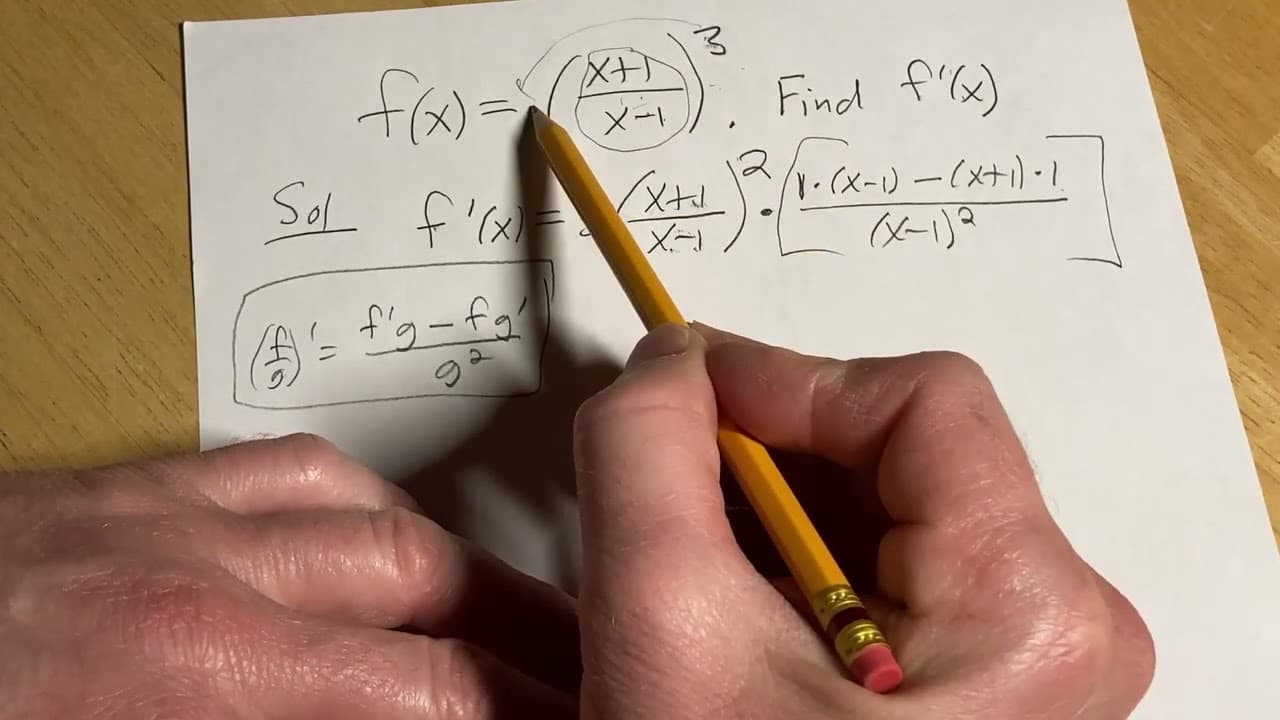 f(x) = (x+1/x-1)³. Find f'(x)
Sol f'(x) = (x+1/x-1)² · [1·(x-1) - (x+1)·1/(x-1)²]
(f/g)' = f'g - fg'/g²